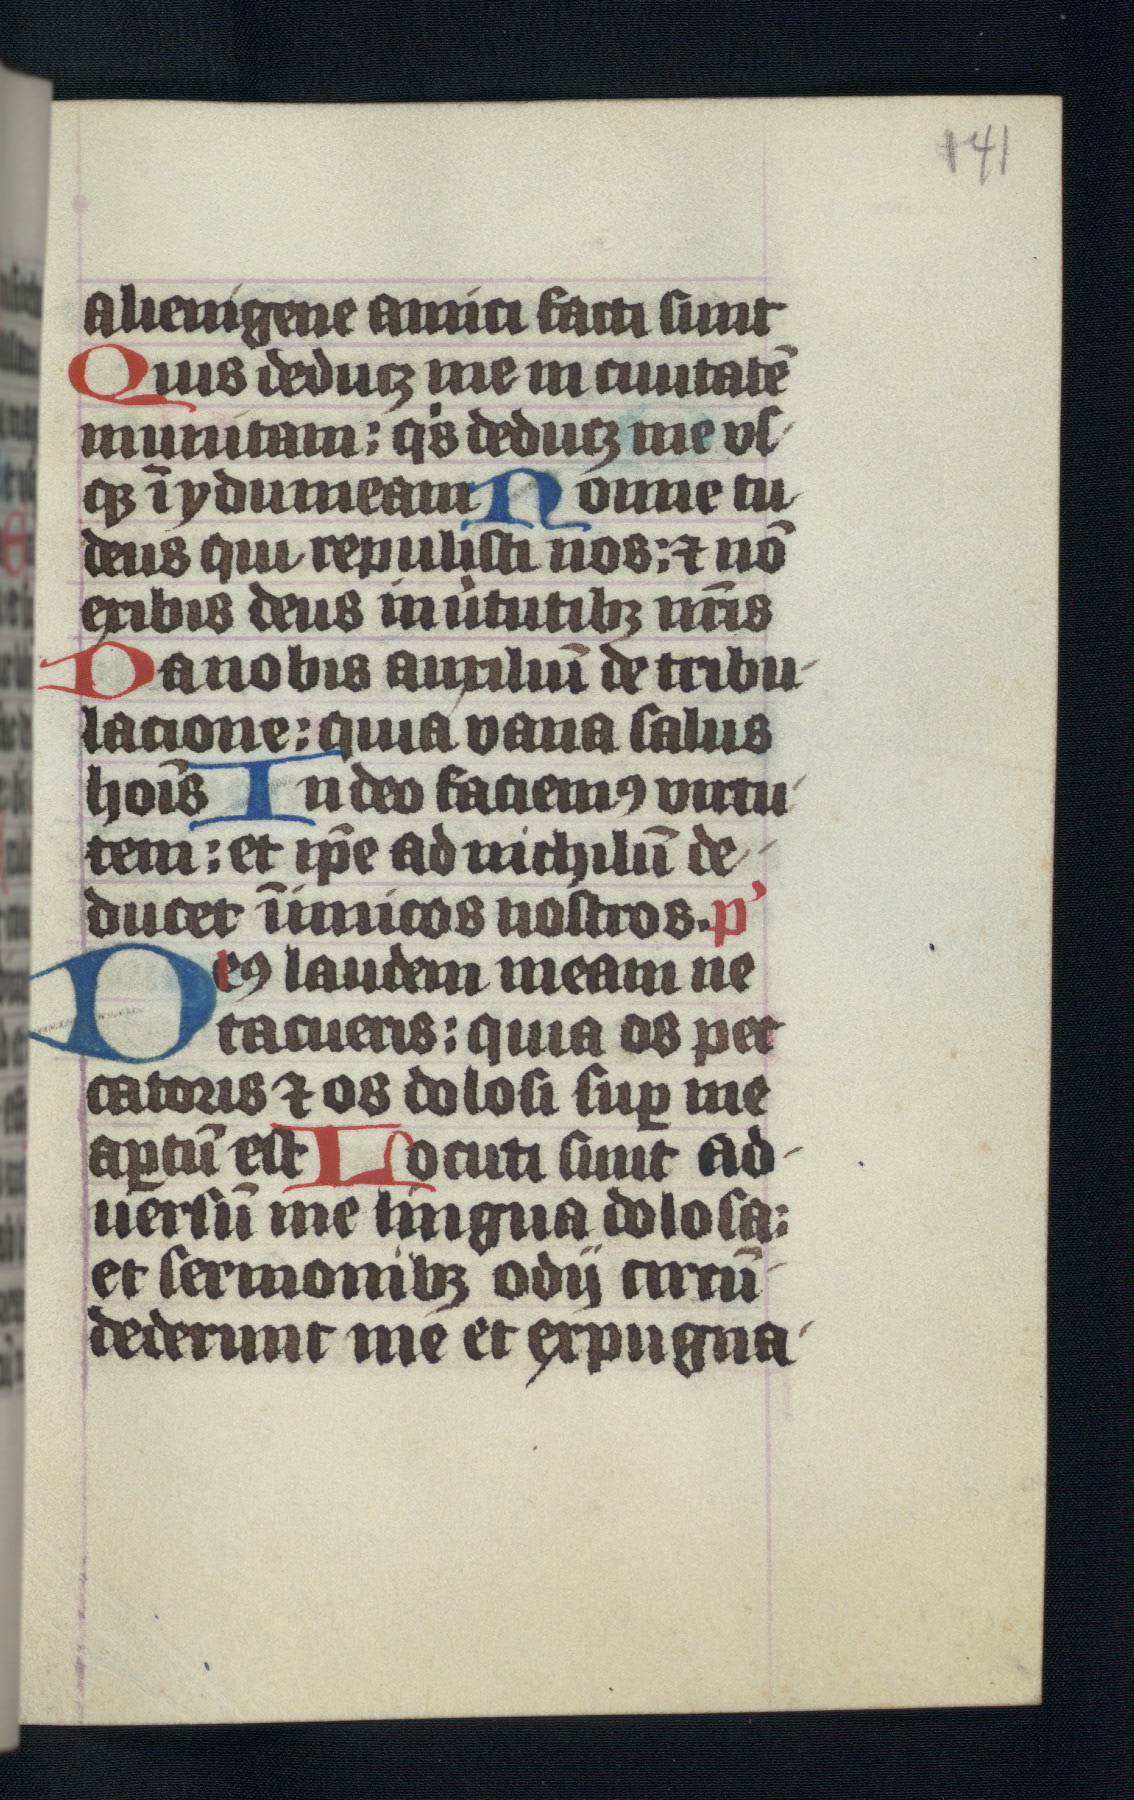 141
alienigene amici facti sunt
Quis deducꝫ me in ciuitatē
munitam: qͥs deducꝫ me vſ-
qꝫ ī ydumeam Nonne tu
deus qui repulisti nos: ⁊ nō
exibis deus in uͥtutibꝫ nr̄is
Da nobis auxiliū de tribu-
lacione: quia vana salus
hoīs In deo faciemꝯ virtu-
tem: et ip̄e ad nichilū de-
ducet īimicos nostros. p̓
Deꝯ laudem meam ne
tacueris: quia os pec
catoris ⁊ os dolosi suꝑ me
aꝑtū est Locuti sunt ad-
uersū me lingua dolosa:
et sermonibꝫ odij circū-
dederunt me et expugna-